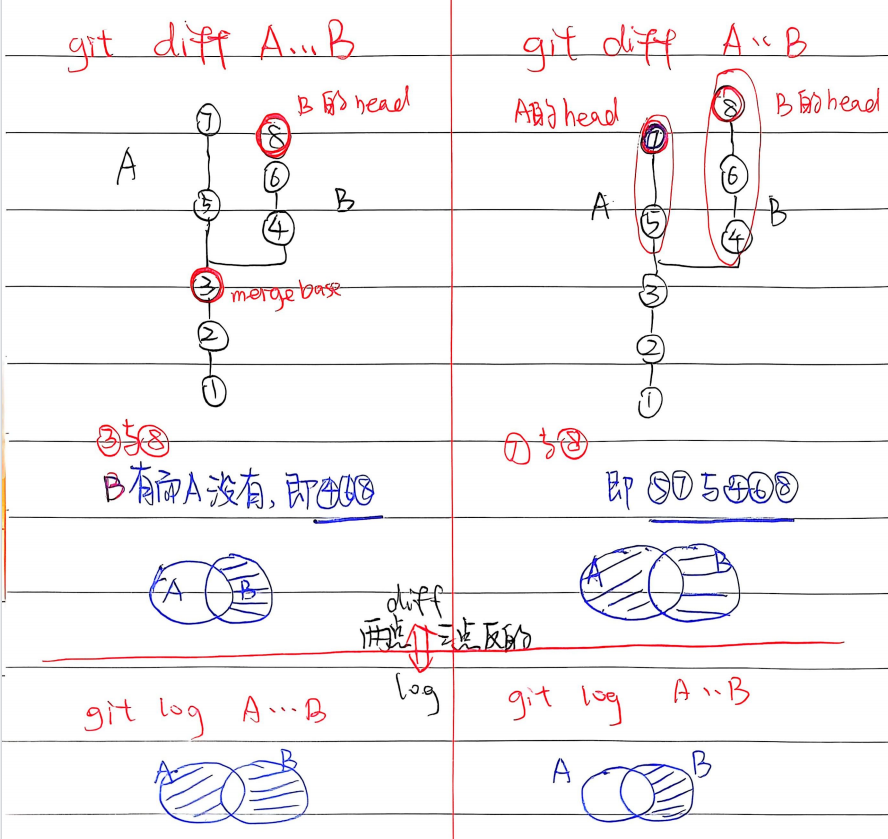 git diff A...B
B的head
⑦
⑧
A
⑥
⑤
B
④
③ mergebase
②
①
③与⑧
B有而A没有,即④⑥⑧
A B
git diff A..B
A的head
B的head
⑧
⑦
⑥
A
⑤
B
④
③
②
①
⑦与⑧
即⑤⑦与④⑥⑧
A B
diff
两点 三点反的
log
git log A...B
A B
git log A..B
A B